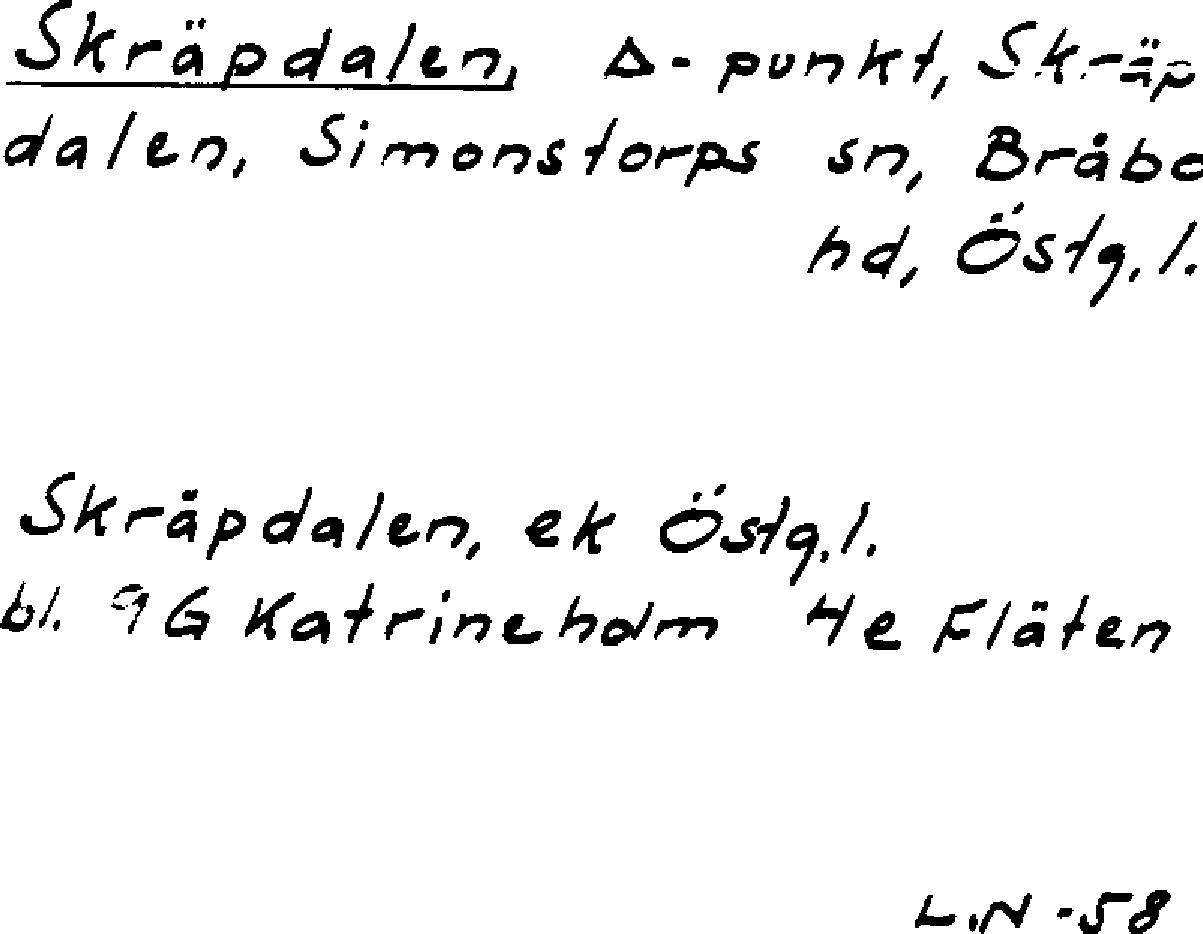 Skräpdalen, Δ-punkt, Skräp
dalen, Simonstorps sn, Bråbo
hd, Östg.l.
Skräpdalen, ek Östg.l.
bl. 9G Katrineholm 4e Fläten
L.N -58